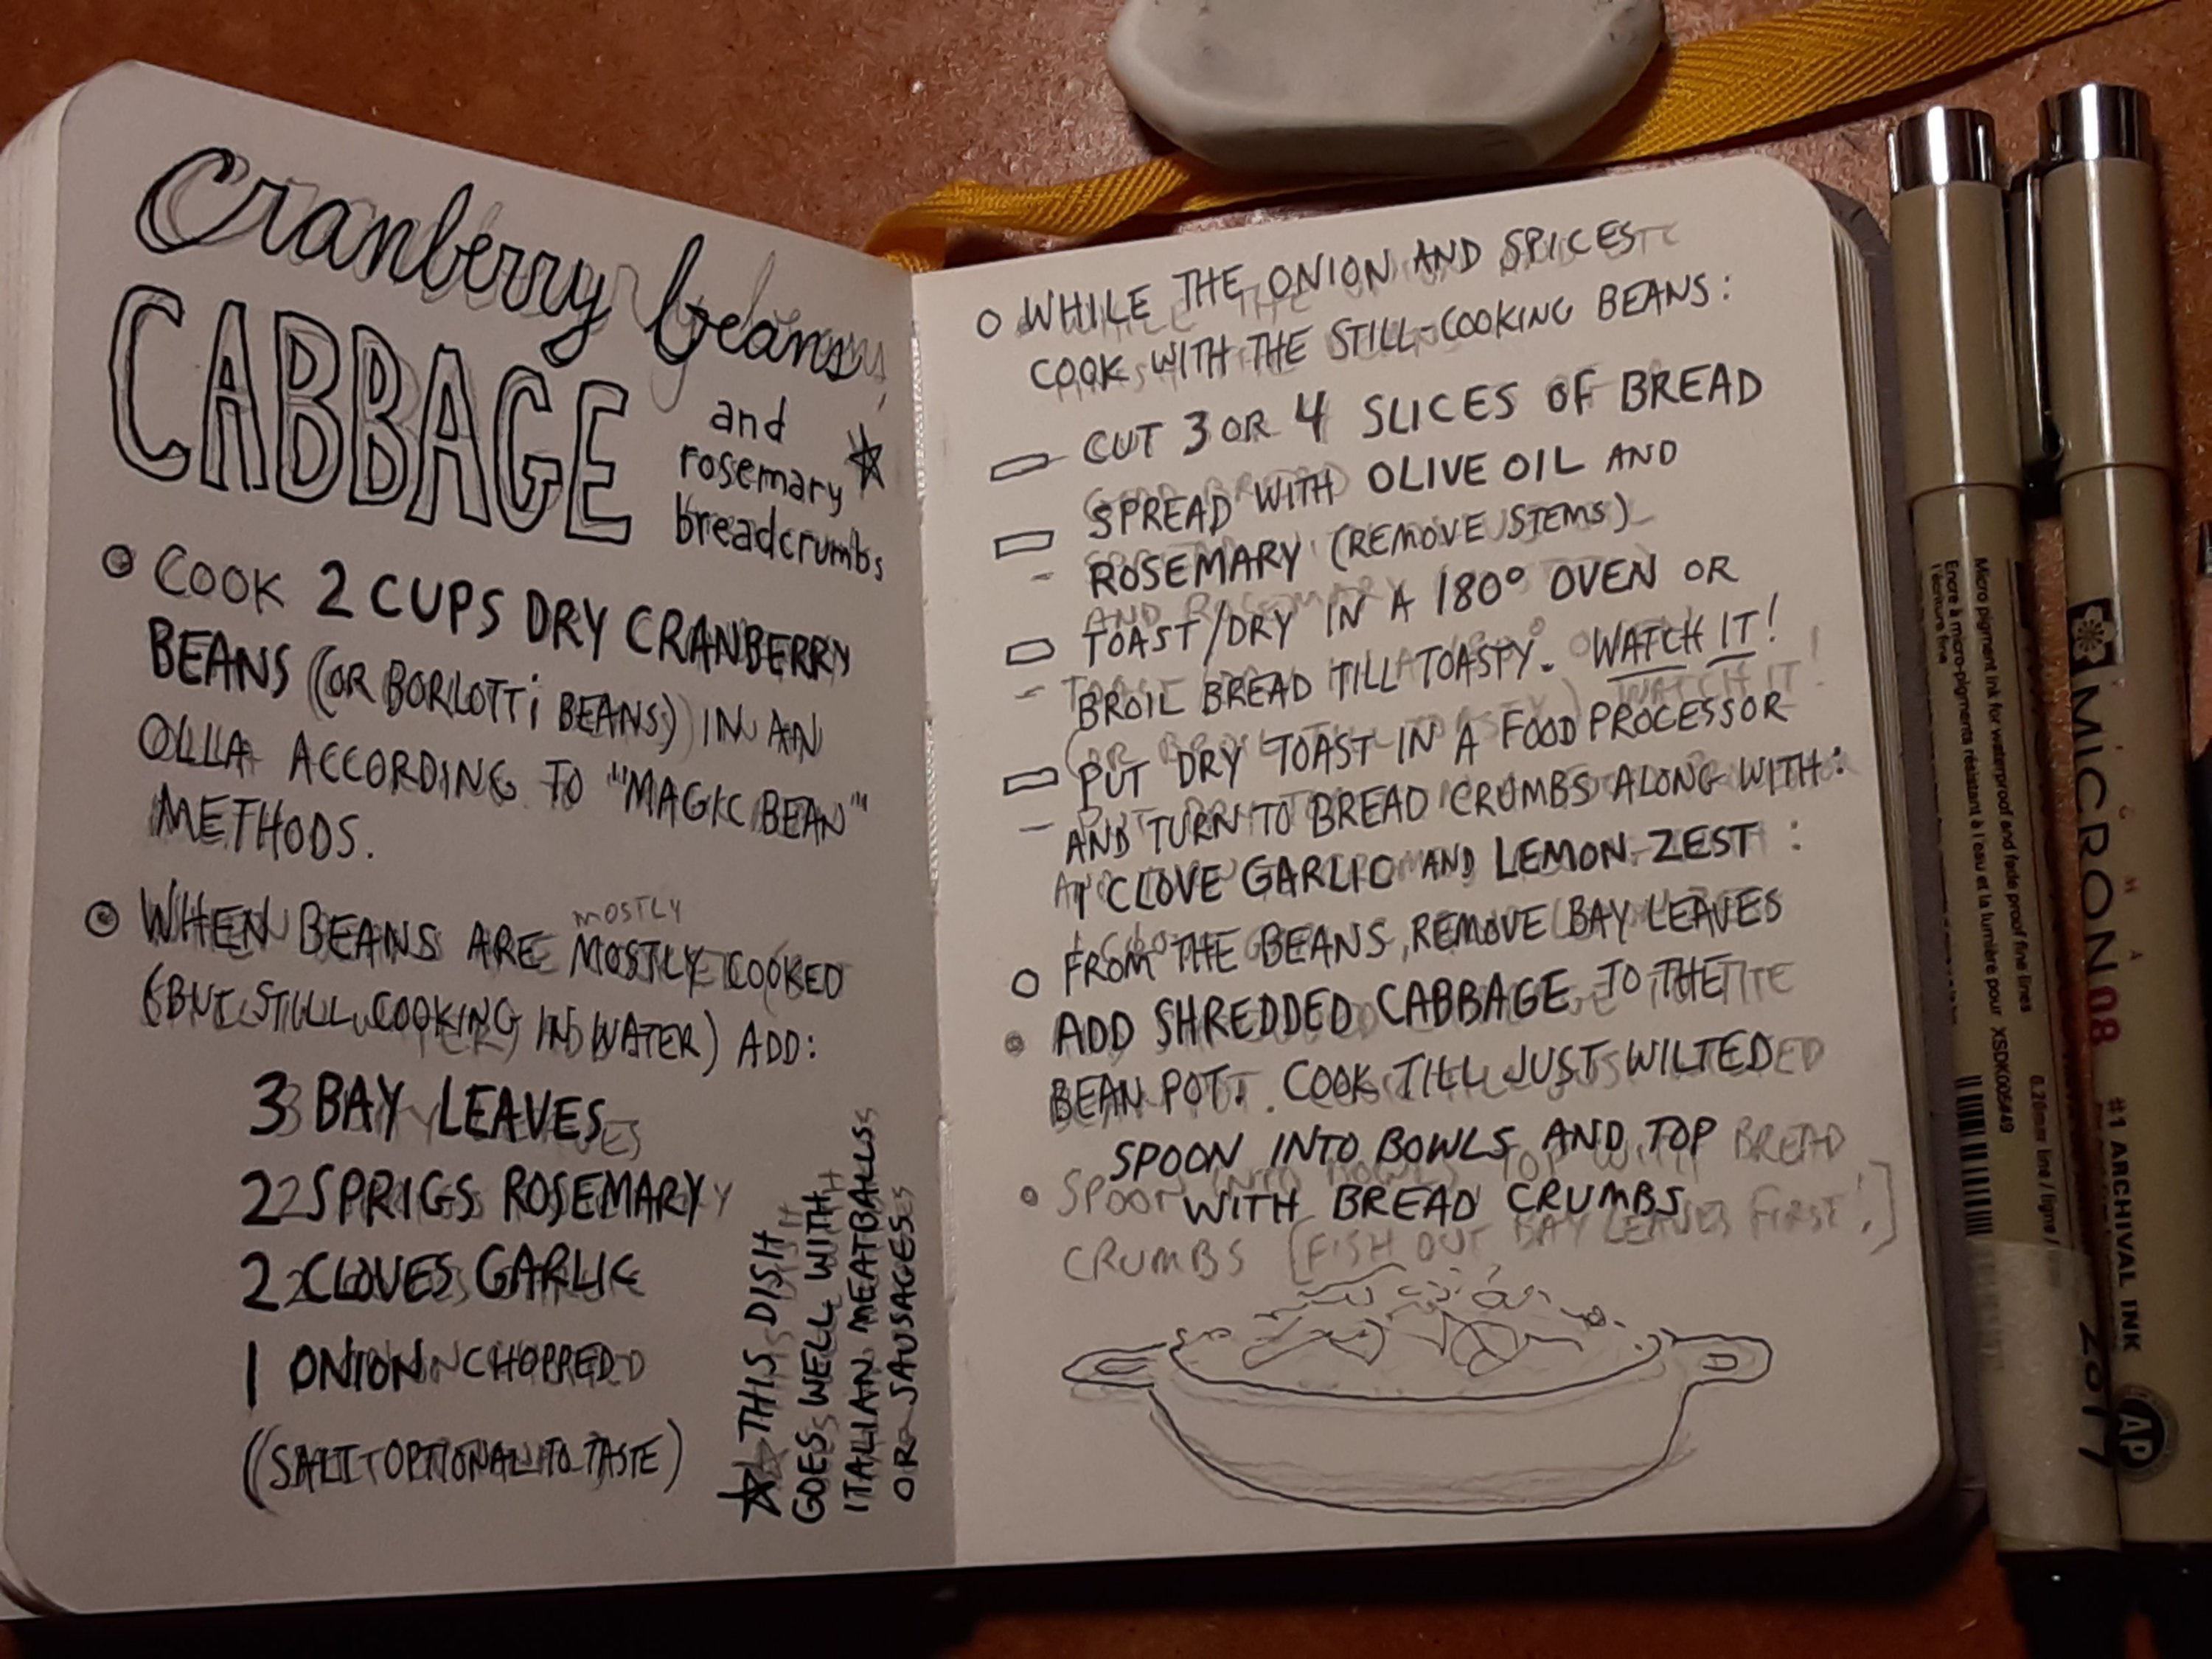 Cranberry beans,
CABBAGE
and
rosemary
breadcrumbs
COOK 2 CUPS DRY CRANBERRY
BEANS (OR BORLOTTi BEANS) IN AN
OLLA ACCORDING TO "MAGIC BEAN"
METHODS.
mostly
WHEN BEANS ARE MOSTLY COOKED
(BUT STILL COOKING IN WATER) ADD:
3 BAY LEAVES
2 SPRIGS ROSEMARY
2 CLOVES GARLIC
1 ONION CHOPPED
(SALT OPTIONAL TO TASTE)
THIS DISH
GOES WELL WITH
ITALIAN MEATBALLS
OR SAUSAGES
WHILE THE ONION AND SPICES
COOK WITH THE STILL-COOKING BEANS:
CUT 3 OR 4 SLICES OF BREAD
SPREAD WITH OLIVE OIL AND
ROSEMARY (REMOVE STEMS)
TOAST/DRY IN A 180° OVEN OR
BROIL BREAD TILL TOASTY. WATCH IT!
PUT DRY TOAST IN A FOOD PROCESSOR
AND TURN TO BREAD CRUMBS ALONG WITH:
1 CLOVE GARLIC AND LEMON ZEST:
FROM THE BEANS, REMOVE BAY LEAVES
ADD SHREDDED CABBAGE TO THE
BEAN POT. COOK TILL JUST WILTED
SPOON INTO BOWLS AND TOP
WITH BREAD CRUMBS
SPOON INTO BOWLS TOP WITH BREAD
CRUMBS [FISH OUT BAY LEAVES FIRST!]
Micro pigment ink for waterproof and fade proof fine lines
Encre à micro-pigments résistant à l'eau et la lumière pour
l'écriture fine
XSDK005#49
0.20mm line / ligne
PIGMA
MICRON 08
#1 ARCHIVAL INK
AP
2017